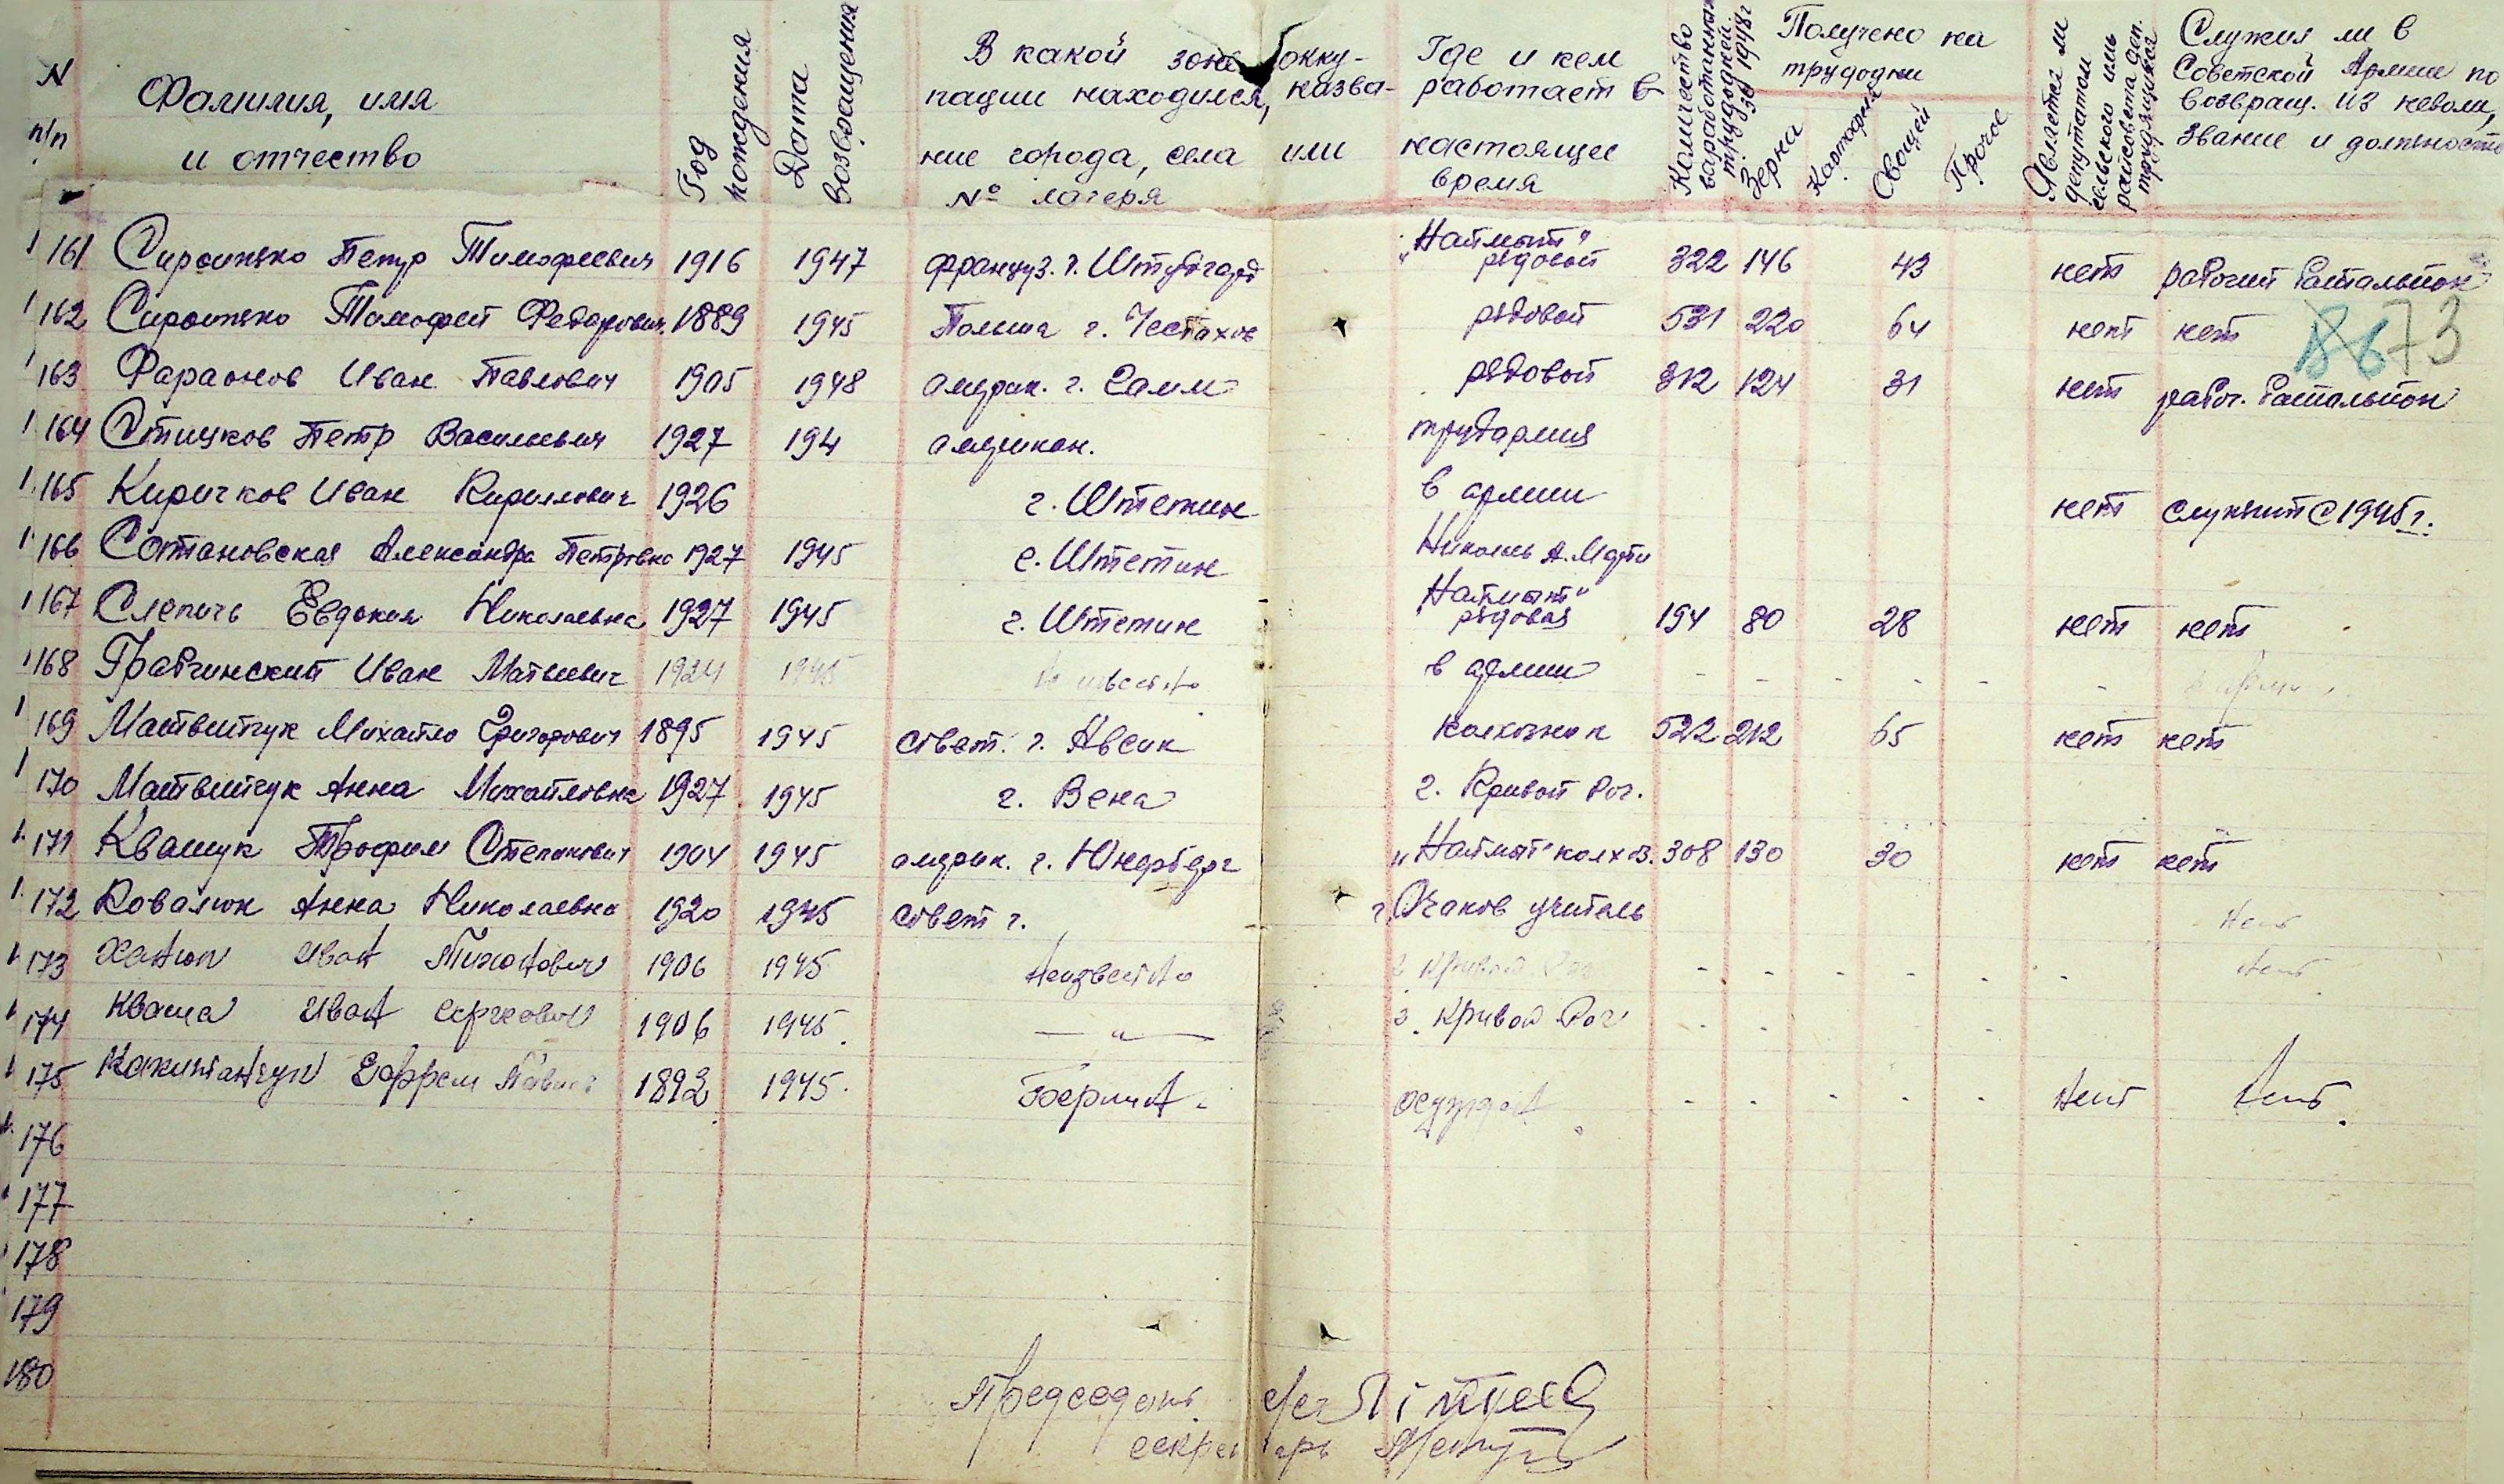 N п/п
Фамилия, имя и отчество
Год рождения
Дата возвращения
В какой зоне оккупации находился, название города, села или № лагеря
Где и кем работает в настоящее время
Количество выработанных трудодней за 1948 г
Получено на трудодни
Зерна
Картофеля
Овощей
Прочее
Является ли депутатом сельского или райсовета деп. трудящихся
Служил ли в Советской Армии по возвращ. из неволи, звание и должность
161 Сиротенко Петр Тимофеевич 1916 1947 француз. г. Штутгард "Наймыт" рядовой 322 146 43 нет рабочий батальйон
8673
162 Сиротенко Тимофей Федорович 1889 1945 Польша г. Честахов рядовой 531 220 64 нет нет
163 Фараонов Иван Павлович 1905 1948 америк. г. рядовой 312 124 31 нет рабоч. батальйон
164 Стицков Петр Васильевич 1927 194 американ. трудармия
165 Киричков Иван Кириллович 1926 г. Штетин в армии нет служит с 1945 г.
166 Сотановская Александра Петровна 1927 1945 г. Штетин
167 Слепичь Евдокия Николаевна 1927 1945 г. Штетин "Наймыт" рядовая 194 80 28 нет нет
168 Грабчинский Иван Матвеевич 1924 1945 в армии - - - - - -
169 Матвейчук Михайло Григорович 1895 1945 совет. г. колхозник 522 212 65 нет нет
170 Матвейчук Анна Михайловна 1927 1945 г. Вена г. Кривой Рог.
171 Квашук Трофим Степанович 1904 1945 америк. г. Юнерберг "Наймыт" колхоз. 308 130 30 нет нет
172 Ковалюк Анна Николаевна 1920 1945 совет г. г. Очаков учитель нет
173 Иван 1906 1945 неизвестно г. Кривой Рог - - - - - - нет
174 Кваша Иван 1906 1945. — " — г. Кривой Рог - - -
175 Ефрем 1892 1945. Берлин осужден - - - - - нет нет.
176
177
178
179
180
Председатель
секретарь